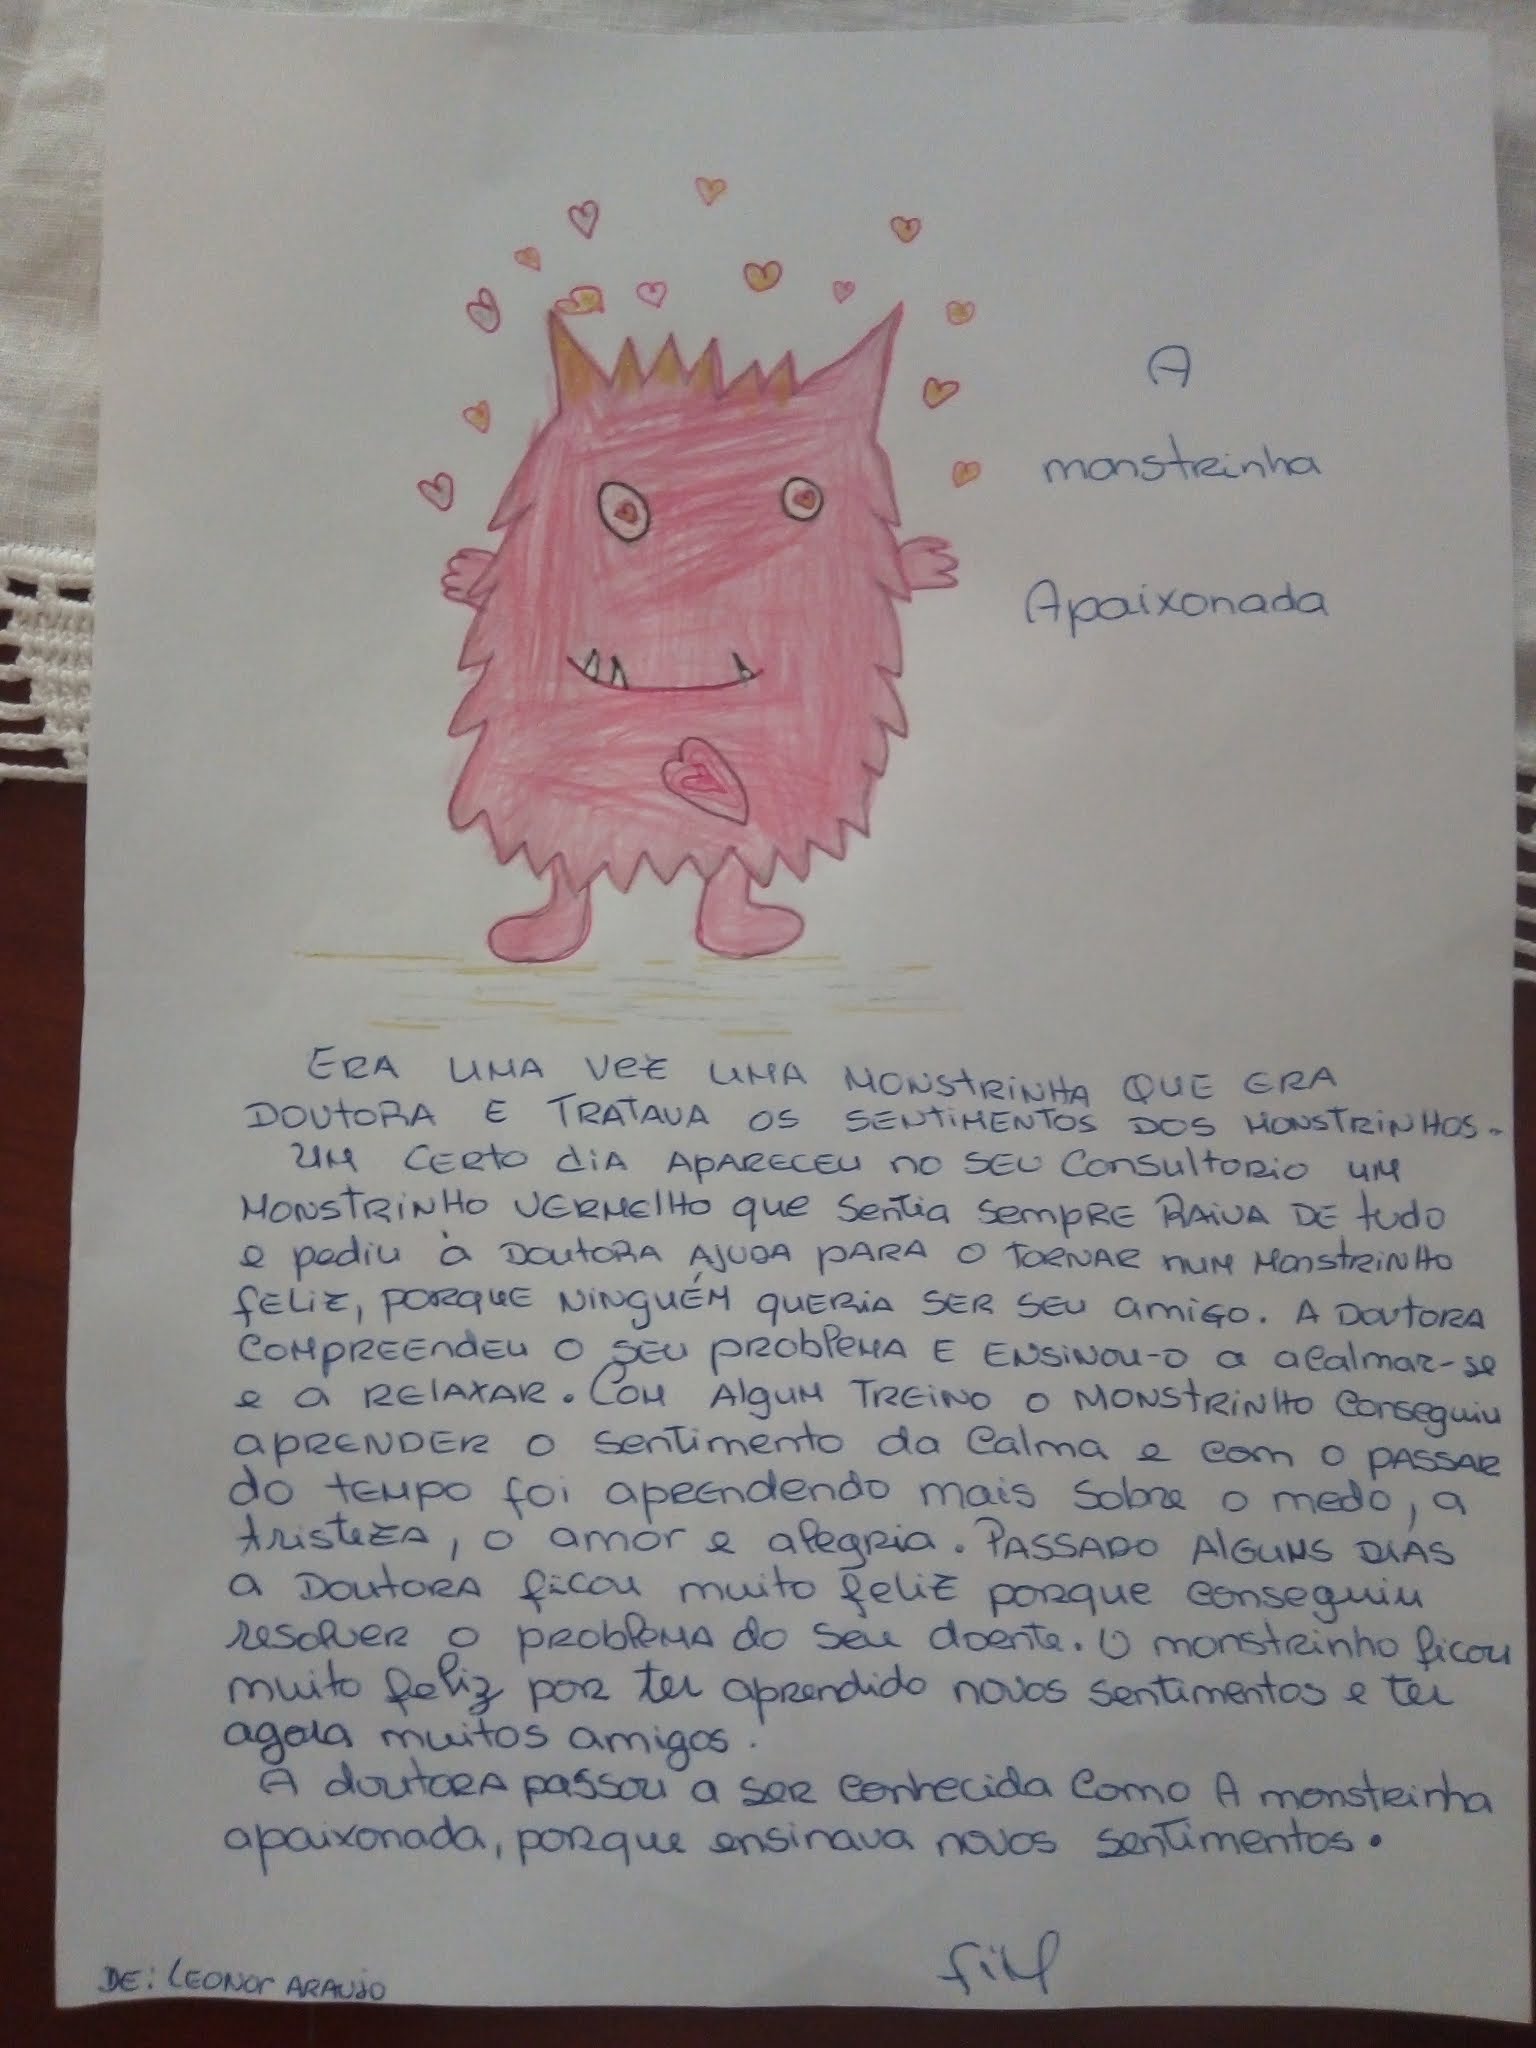 A
monstrinha
Apaixonada
ERA UMA VEZ UMA MONSTRINHA QUE ERA
DOUTORA E TRATAVA OS SENTIMENTOS DOS MONSTRINHOS.
UM CERTO dIA APARECEU no SEU CONSULTORIO UM
MONSTRINHO VERMELHO que Sentia SEMPRE RAIVA DE tudo
e pediu à DOUTORA AJUDA PARA O TORNAR nuM MONSTRINHO
FELIZ, PORQUE NINGUÉM QUERIA SER SEU amiGO. A DOUTORA
COMPREENDEU O SEU PROBlEMA E ENSINOU-O a acalmar-se
e a RELAXAR. COM AlguM TREINO O MONSTRINHO conseguiu
APRENDER o sentimento da calma e com o PASSAR
do TEMPO foi aprendendo mais sobre o medo, a
tristeza, o amor e alegria. PASSADO AlGUNS DIAS
a DOUTORA ficou muito feliz porque conseguiu
resolver o problema do seu doente. O monstrinho ficou
muito feliz por ter aprendido novos sentimentos e ter
agora muitos amigos.
A doutora passou a ser conhecida como A monstrinha
apaixonada, porque ensinava novos sentimentos.
fiM
DE: LEONor ARAUJO